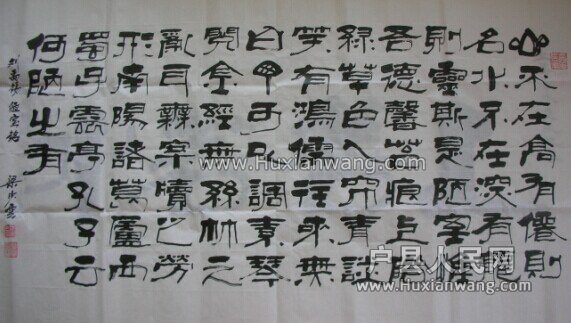 山不在高有僊則
名水不在深有龍
則靈斯是陋室惟
吾德馨苔痕上階
綠草色入簾青談
笑有鴻儒往來無
白甲可以調素琴
閱金經無絲竹之
亂耳無案牘之勞
形南陽諸葛廬西
蜀子雲亭孔子云
何陋之有
刘禹锡陋室铭
www.Huxianwang.com
户县人民网
www.Huxianwang.com